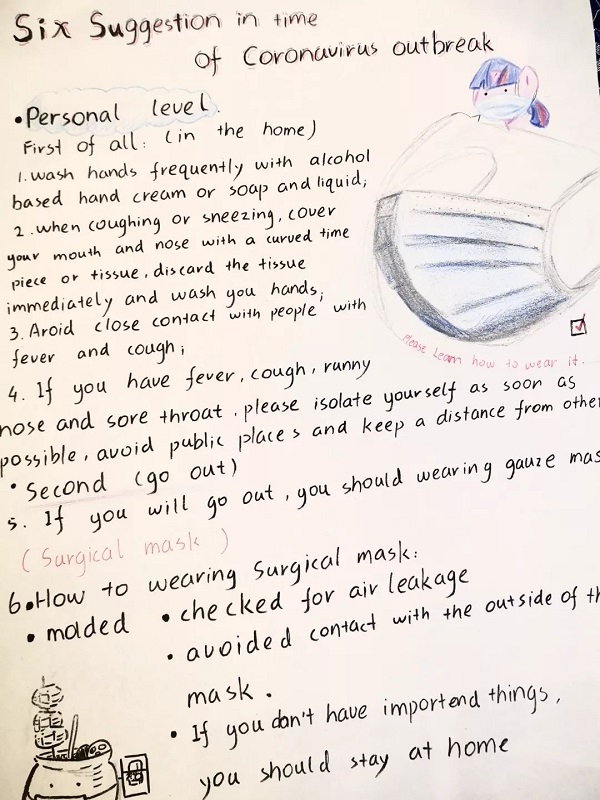 Six Suggestion in time
of Coronavirus outbreak
•Personal level.
First of all: (in the home)
1.wash hands frequently with alcohol
based hand cream or soap and liquid;
2.when coughing or sneezing, cover
your mouth and nose with a curved time
piece or tissue, discard the tissue
immediately and wash you hands;
3. Aroid close contact with people with
fever and cough;
Please Learn how to wear it.
4. If you have fever, cough, runny
nose and sore throat, please isolate yourself as soon as
possible, avoid public places and keep a distance from other
• Second (go out)
5. If you will go out, you should wearing gauze mas
(Surgical mask)
6.How to wearing Surgical mask:
• molded • checked for air leakage
• avoided contact with the outside of th
mask.
• If you don't have importend things,
you should stay at home